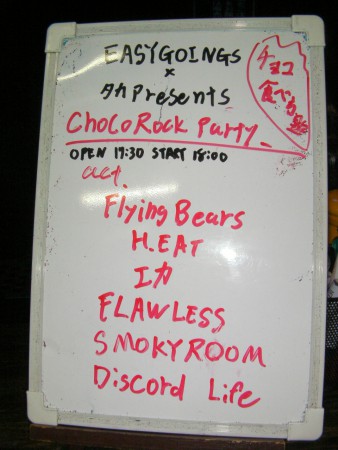 EASYGOINGS
×
タカPresents
ChocoRock Party
チョコ
食べ放題
OPEN 17:30 START 18:00
act.
Flying Bears
H.EAT
エカ
FLAWLESS
SMOKYROOM
Discord Life